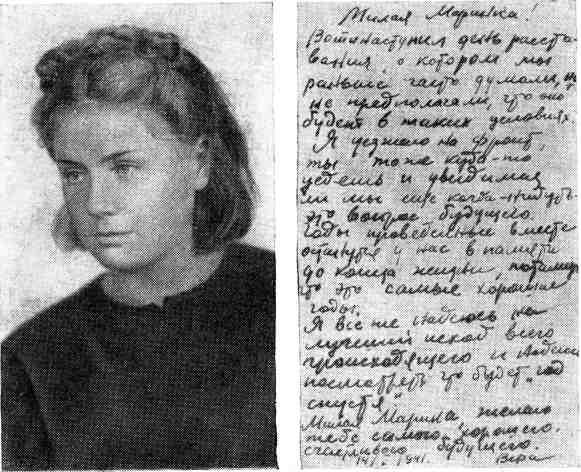 Милая Маринка!
Вот и наступил день расста-
вания, о котором мы
раньше часто думали, но
не предполагали, что оно
будет в таких условиях.
Я уезжаю на фронт,
ты тоже куда-то
уедешь и увидимся
ли мы еще когда-нибудь-
это вопрос будущего.
Годы, проведенные вместе
останутся у нас в памяти
до конца жизни, потому
что это самые хорошие
годы.
Я все же надеюсь на
лучший исход всего
происходящего и
посмотреть что будет „год
спустя“
Милая Марина желаю
тебе самого хорошего.
счастливого будущего.
1941. Вера